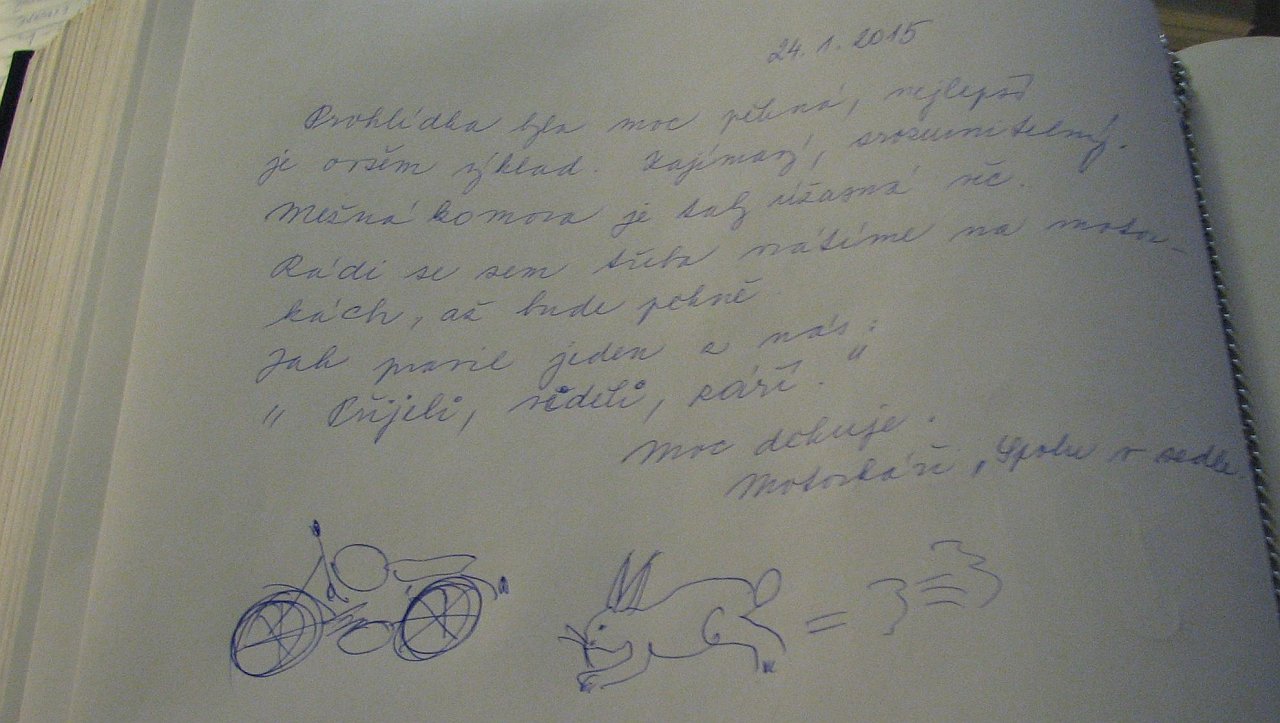 24. 1. 2015
Prohlídka byla moc pěkná, nejlepší
je ovšem výklad. Zajímavý, srozumitelný.
Mešná komora je taky úžasná věc.
Rádi se sem třeba vrátíme na motor-
kách, až bude pěkně
Jak pravil jeden z nás:
"Přijeli, viděli, září."
Moc děkuje.
Motorkáři "Spolu v sedle
= 3 = 3